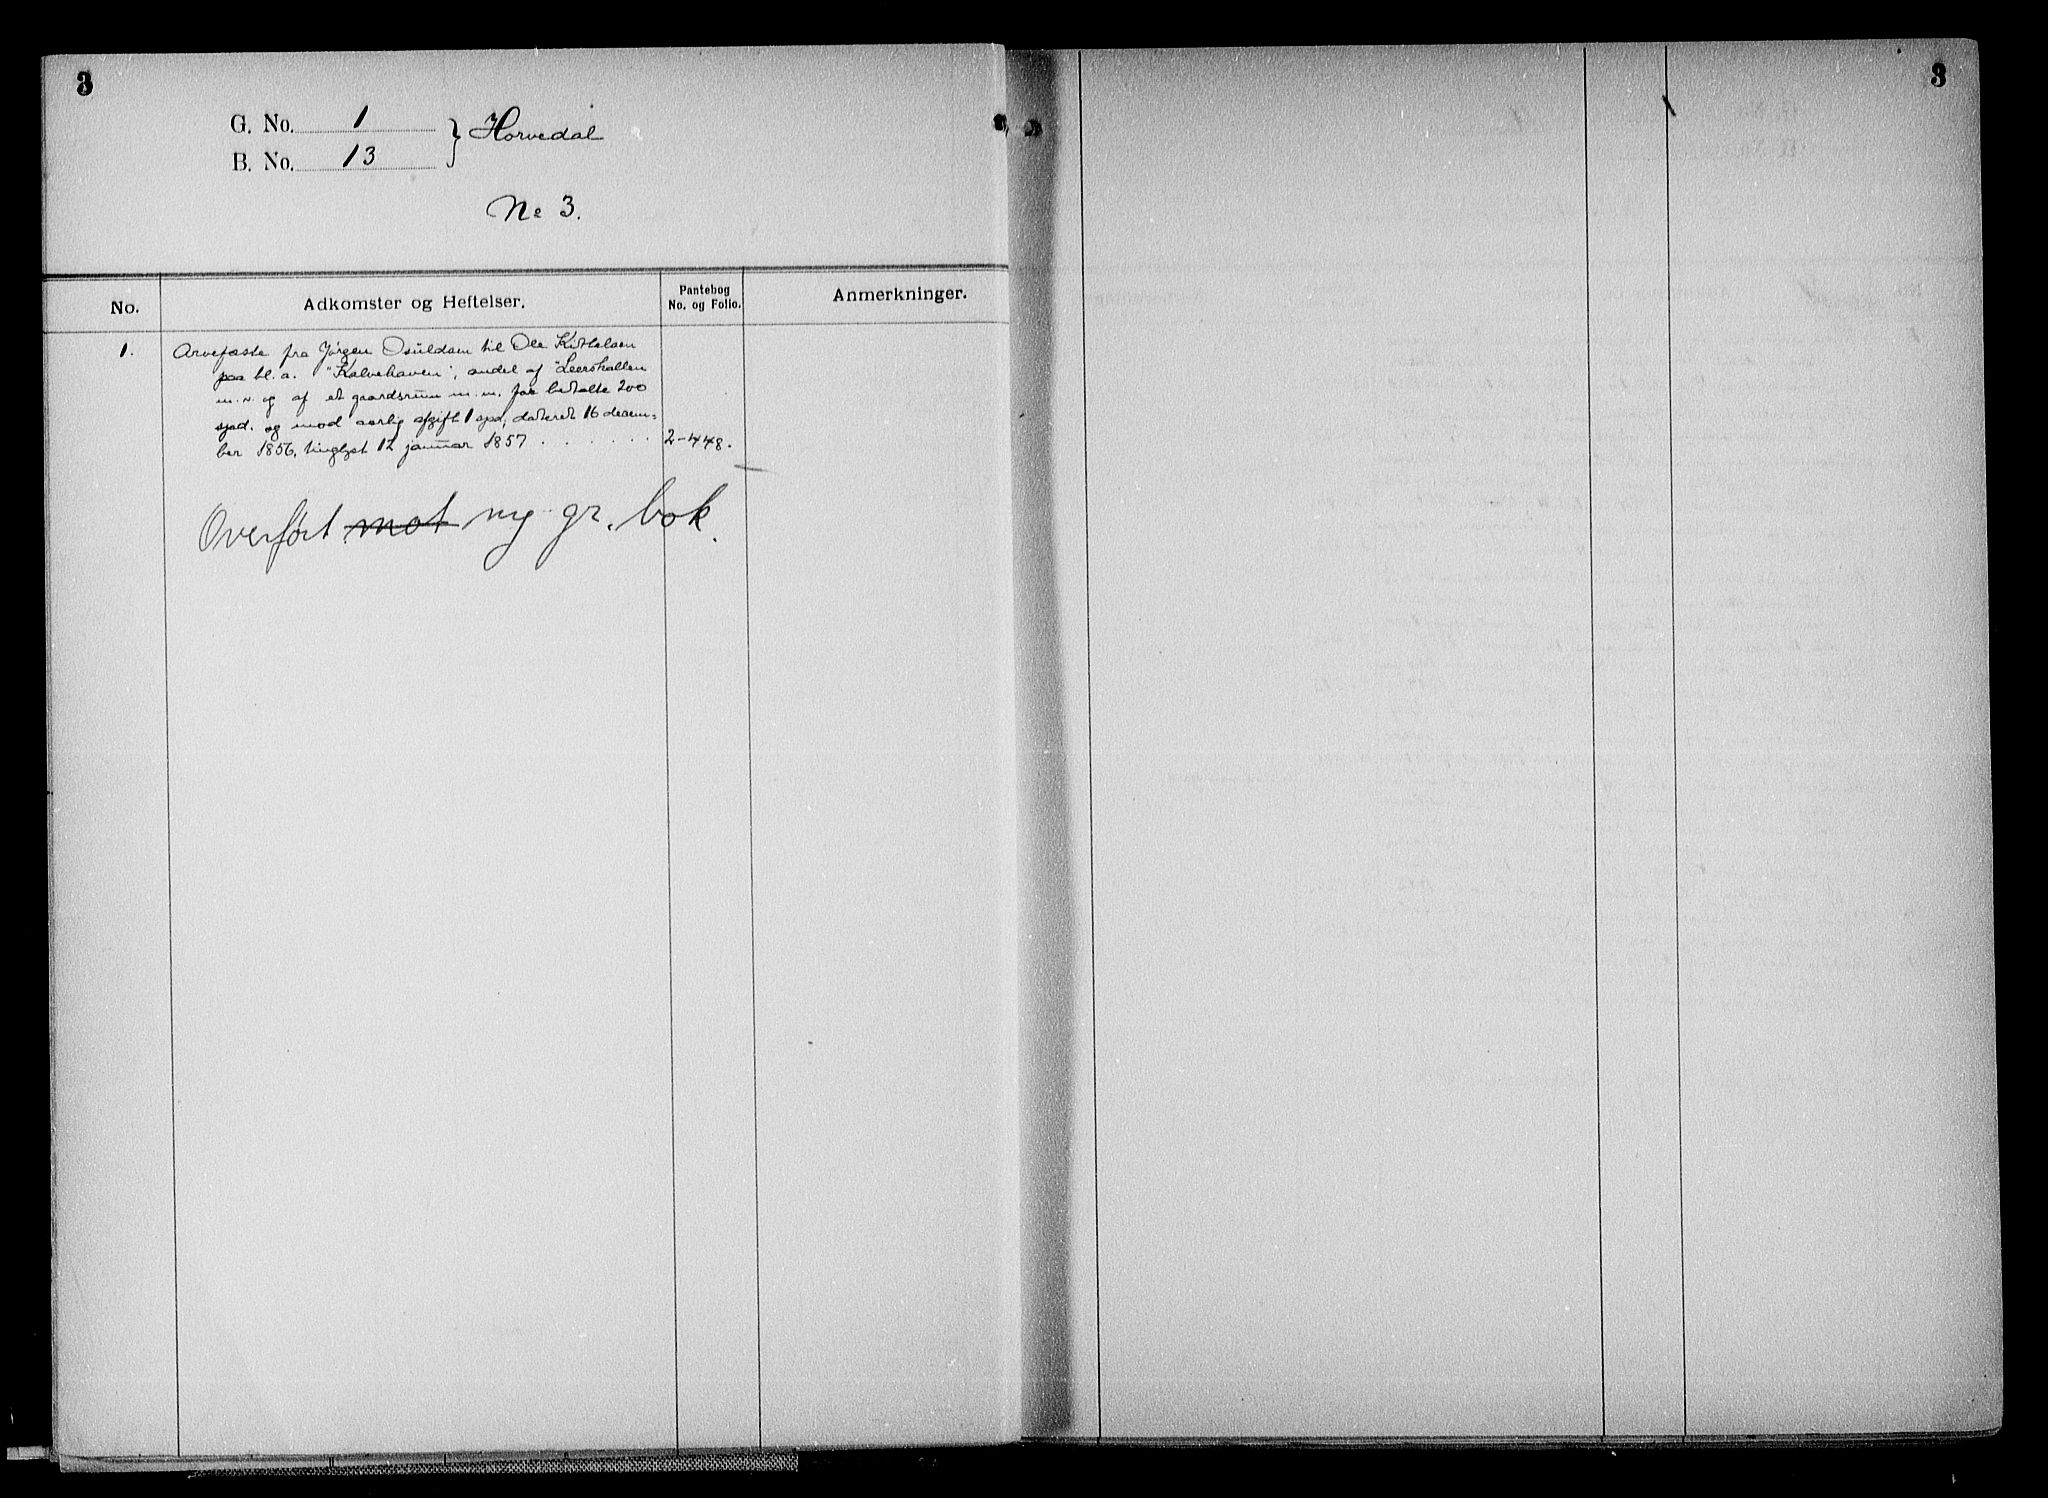 3
G. No. 1 } Horvedal
B. No. 13
No 3.
No.
Adkomster og Heftelser.
Pantebog
No. og Folio.
Anmerkninger.
1. Arvefæste fra Jørgen Osuldsen til Ole Kittelsen
paa bl. a. "Kalvehaven", andel af "Leershallen
m. v. og af et gaardsrum m. m. for betalte 200
spd. og mod aarlig afgift 1 spd, dateret 16 decem=
ber 1856, tinglyst 12 januar 1857 . . . . . . 2-448.
Overført mot ny gr. bok.
3